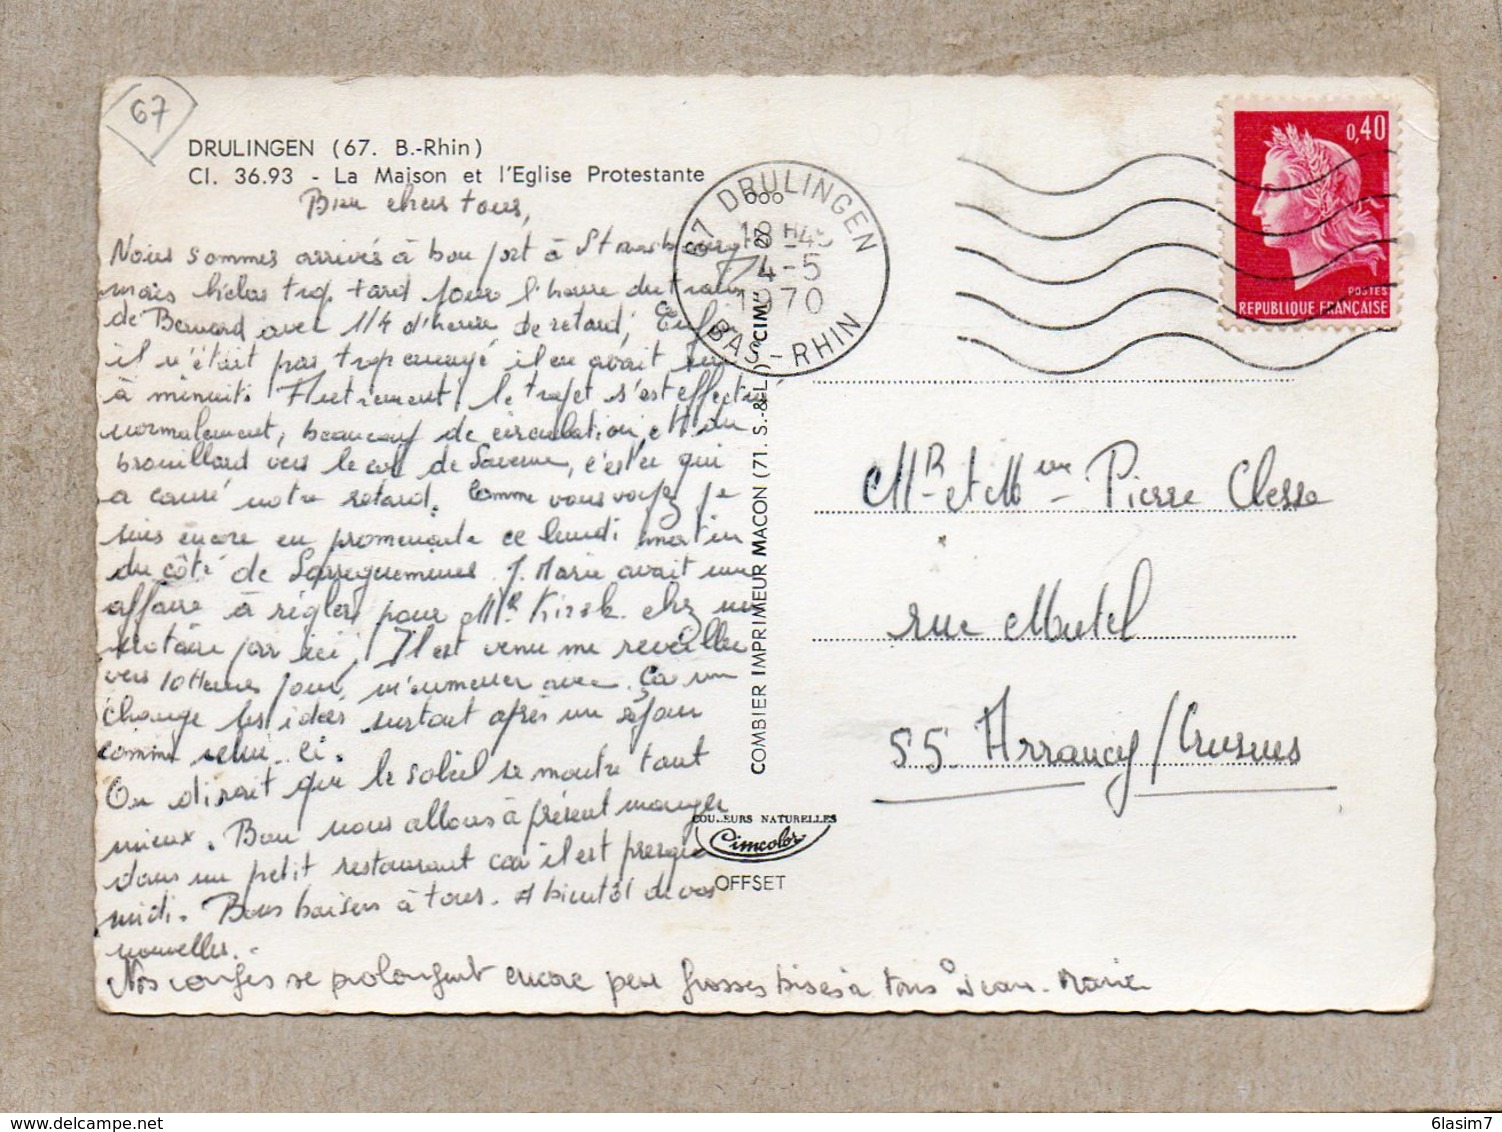 67
DRULINGEN (67. B.-Rhin)
Cl. 36.93 - La Maison et l'Eglise Protestante
Bien chers tous,
Nous sommes arrivés à bon port à Strasbourg
mais hélas trop tard pour l'heure du train
de Bernard avec 1/4 d'heure de retard, Enfin
il n'était pas trop ennuyé il en avait un
à minuit. Autrement, le trajet s'est effectué
normalement, beaucoup de circulation, et du
brouillard vers le col de Saverne, c'est ce qui
a causé notre retard. Comme vous voyez je
suis encore en promenade ce lundi matin
du côté de Sarreguemines. J. Marie avait une
affaire à régler pour Mr chez un
notaire par ici, Il est venu me réveiller
vers 10 Heures pour m'emmener avec. Ça
change les idées surtout après un séjour
comme celui-ci.
On dirait que le soleil se montre tant
mieux. Bon nous allons à présent manger
dans un petit restaurant car il est presque
midi. Bons baisers à tous. A bientôt de vos
nouvelles.
Nos congés se prolongent encore peu grosses bises à tous Jean-Marie
67 DRULINGEN
18H45
4-5
1970
BAS-RHIN
0,40
POSTES
REPUBLIQUE FRANÇAISE
COMBIER IMPRIMEUR MACON (71. S.-&-L.) "CIM"
COULEURS NATURELLES
Cimcolor
OFFSET
Mr et Mme Pierre Clesse
rue Martel
55 Arrancy/Crusnes
delcampe.net
6lasim7